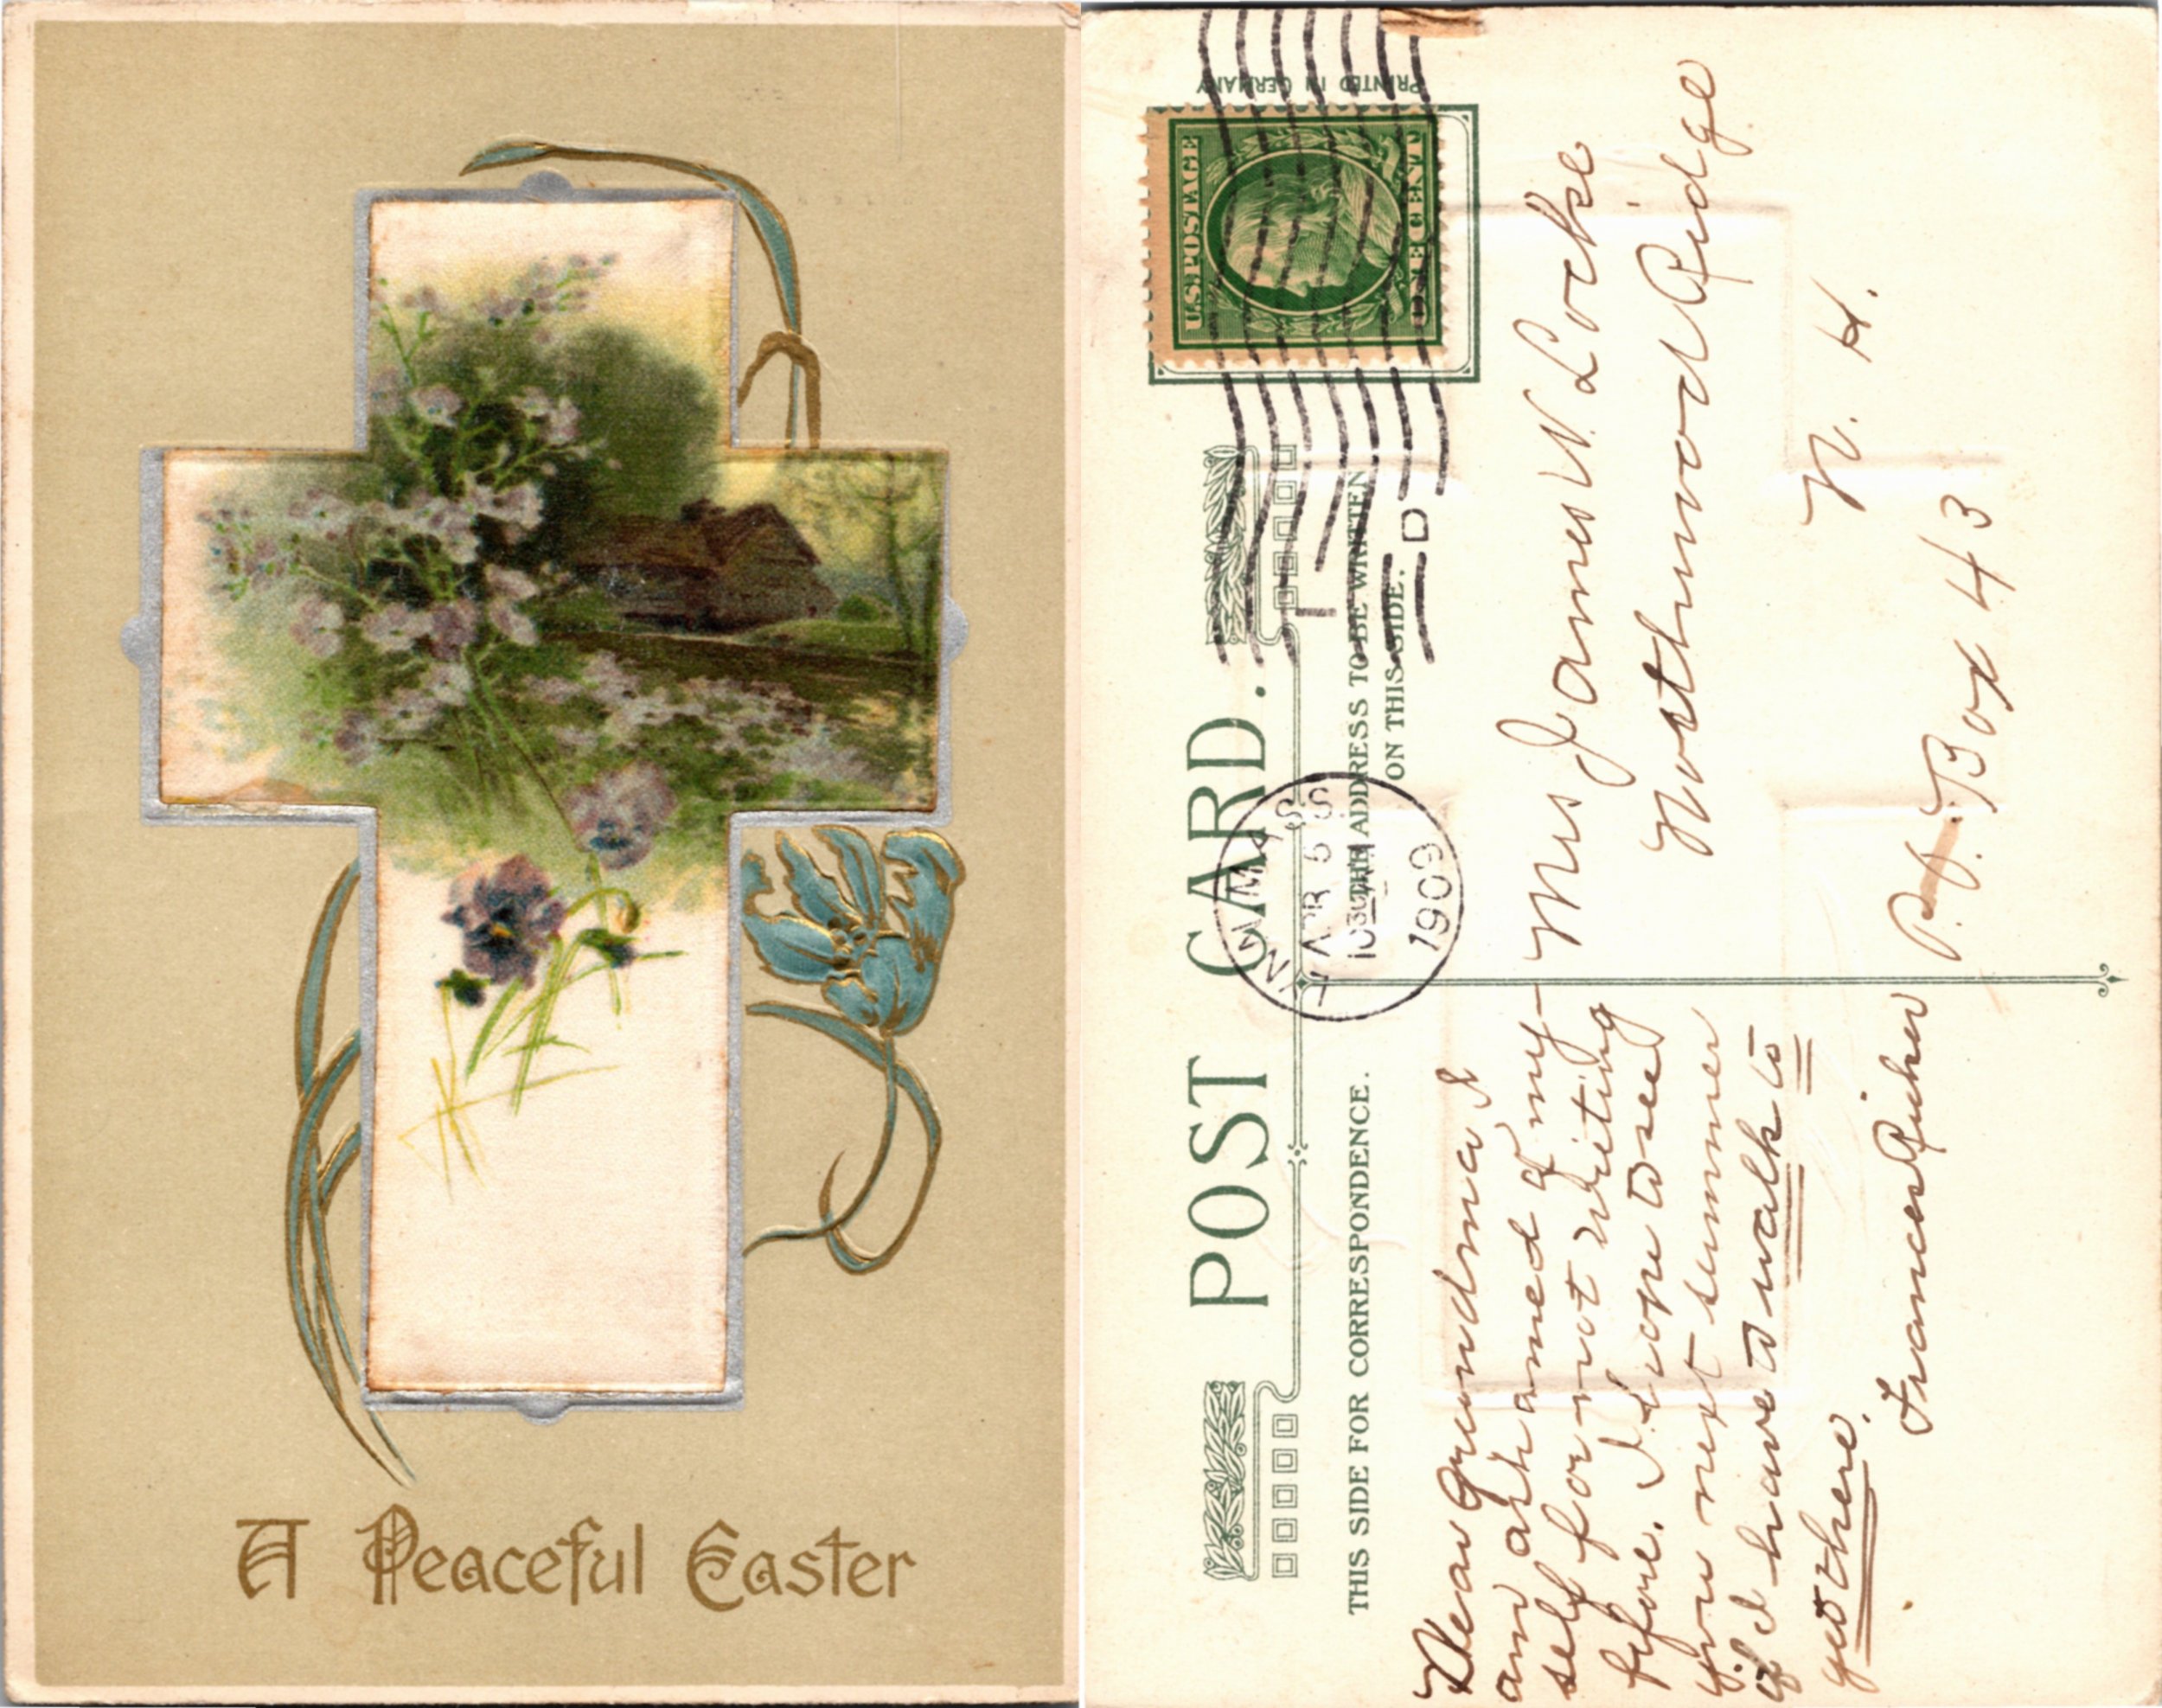 A Peaceful Easter
POST CARD.
PRINTED IN GERMANY
U.S. POSTAGE
ONE CENT
LYNN, MASS
APR 5
1909
D
THIS SIDE FOR CORRESPONDENCE.
THE ADDRESS TO BE WRITTEN
ON THIS SIDE.
Dear Grandma, I
am ashamed of my-
self for not writing
before. I hope to see
you next summer
if I have to walk to
get there.
Frances Richer
Mrs James W. Locke
Northwood Ridge
N. H.
P.O. Box 43